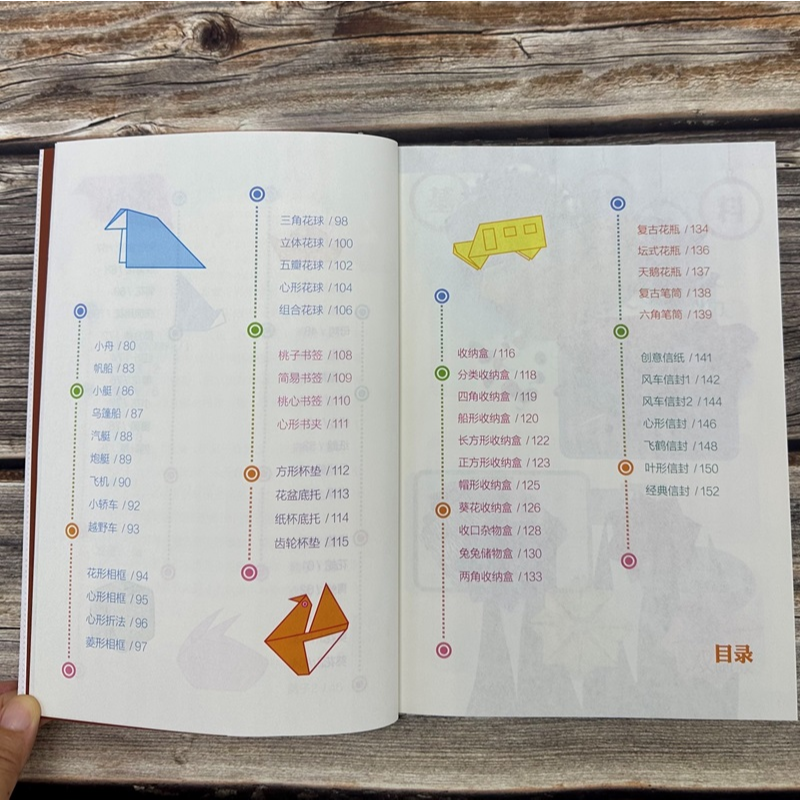 小舟 / 80
帆船 / 83
小艇 / 86
乌篷船 / 87
汽艇 / 88
炮艇 / 89
飞机 / 90
小轿车 / 92
越野车 / 93
花形相框 / 94
心形相框 / 95
心形折法 / 96
菱形相框 / 97
三角花球 / 98
立体花球 / 100
五瓣花球 / 102
心形花球 / 104
组合花球 / 106
桃子书签 / 108
简易书签 / 109
桃心书签 / 110
心形书夹 / 111
方形杯垫 / 112
花盆底托 / 113
纸杯底托 / 114
齿轮杯垫 / 115
收纳盒 / 116
分类收纳盒 / 118
四角收纳盒 / 119
船形收纳盒 / 120
长方形收纳盒 / 122
正方形收纳盒 / 123
帽形收纳盒 / 125
葵花收纳盒 / 126
收口杂物盒 / 128
兔兔储物盒 / 130
两角收纳盒 / 133
复古花瓶 / 134
坛式花瓶 / 136
天鹅花瓶 / 137
复古笔筒 / 138
六角笔筒 / 139
创意信纸 / 141
风车信封1 / 142
风车信封2 / 144
心形信封 / 146
飞鹤信封 / 148
叶形信封 / 150
经典信封 / 152
目录